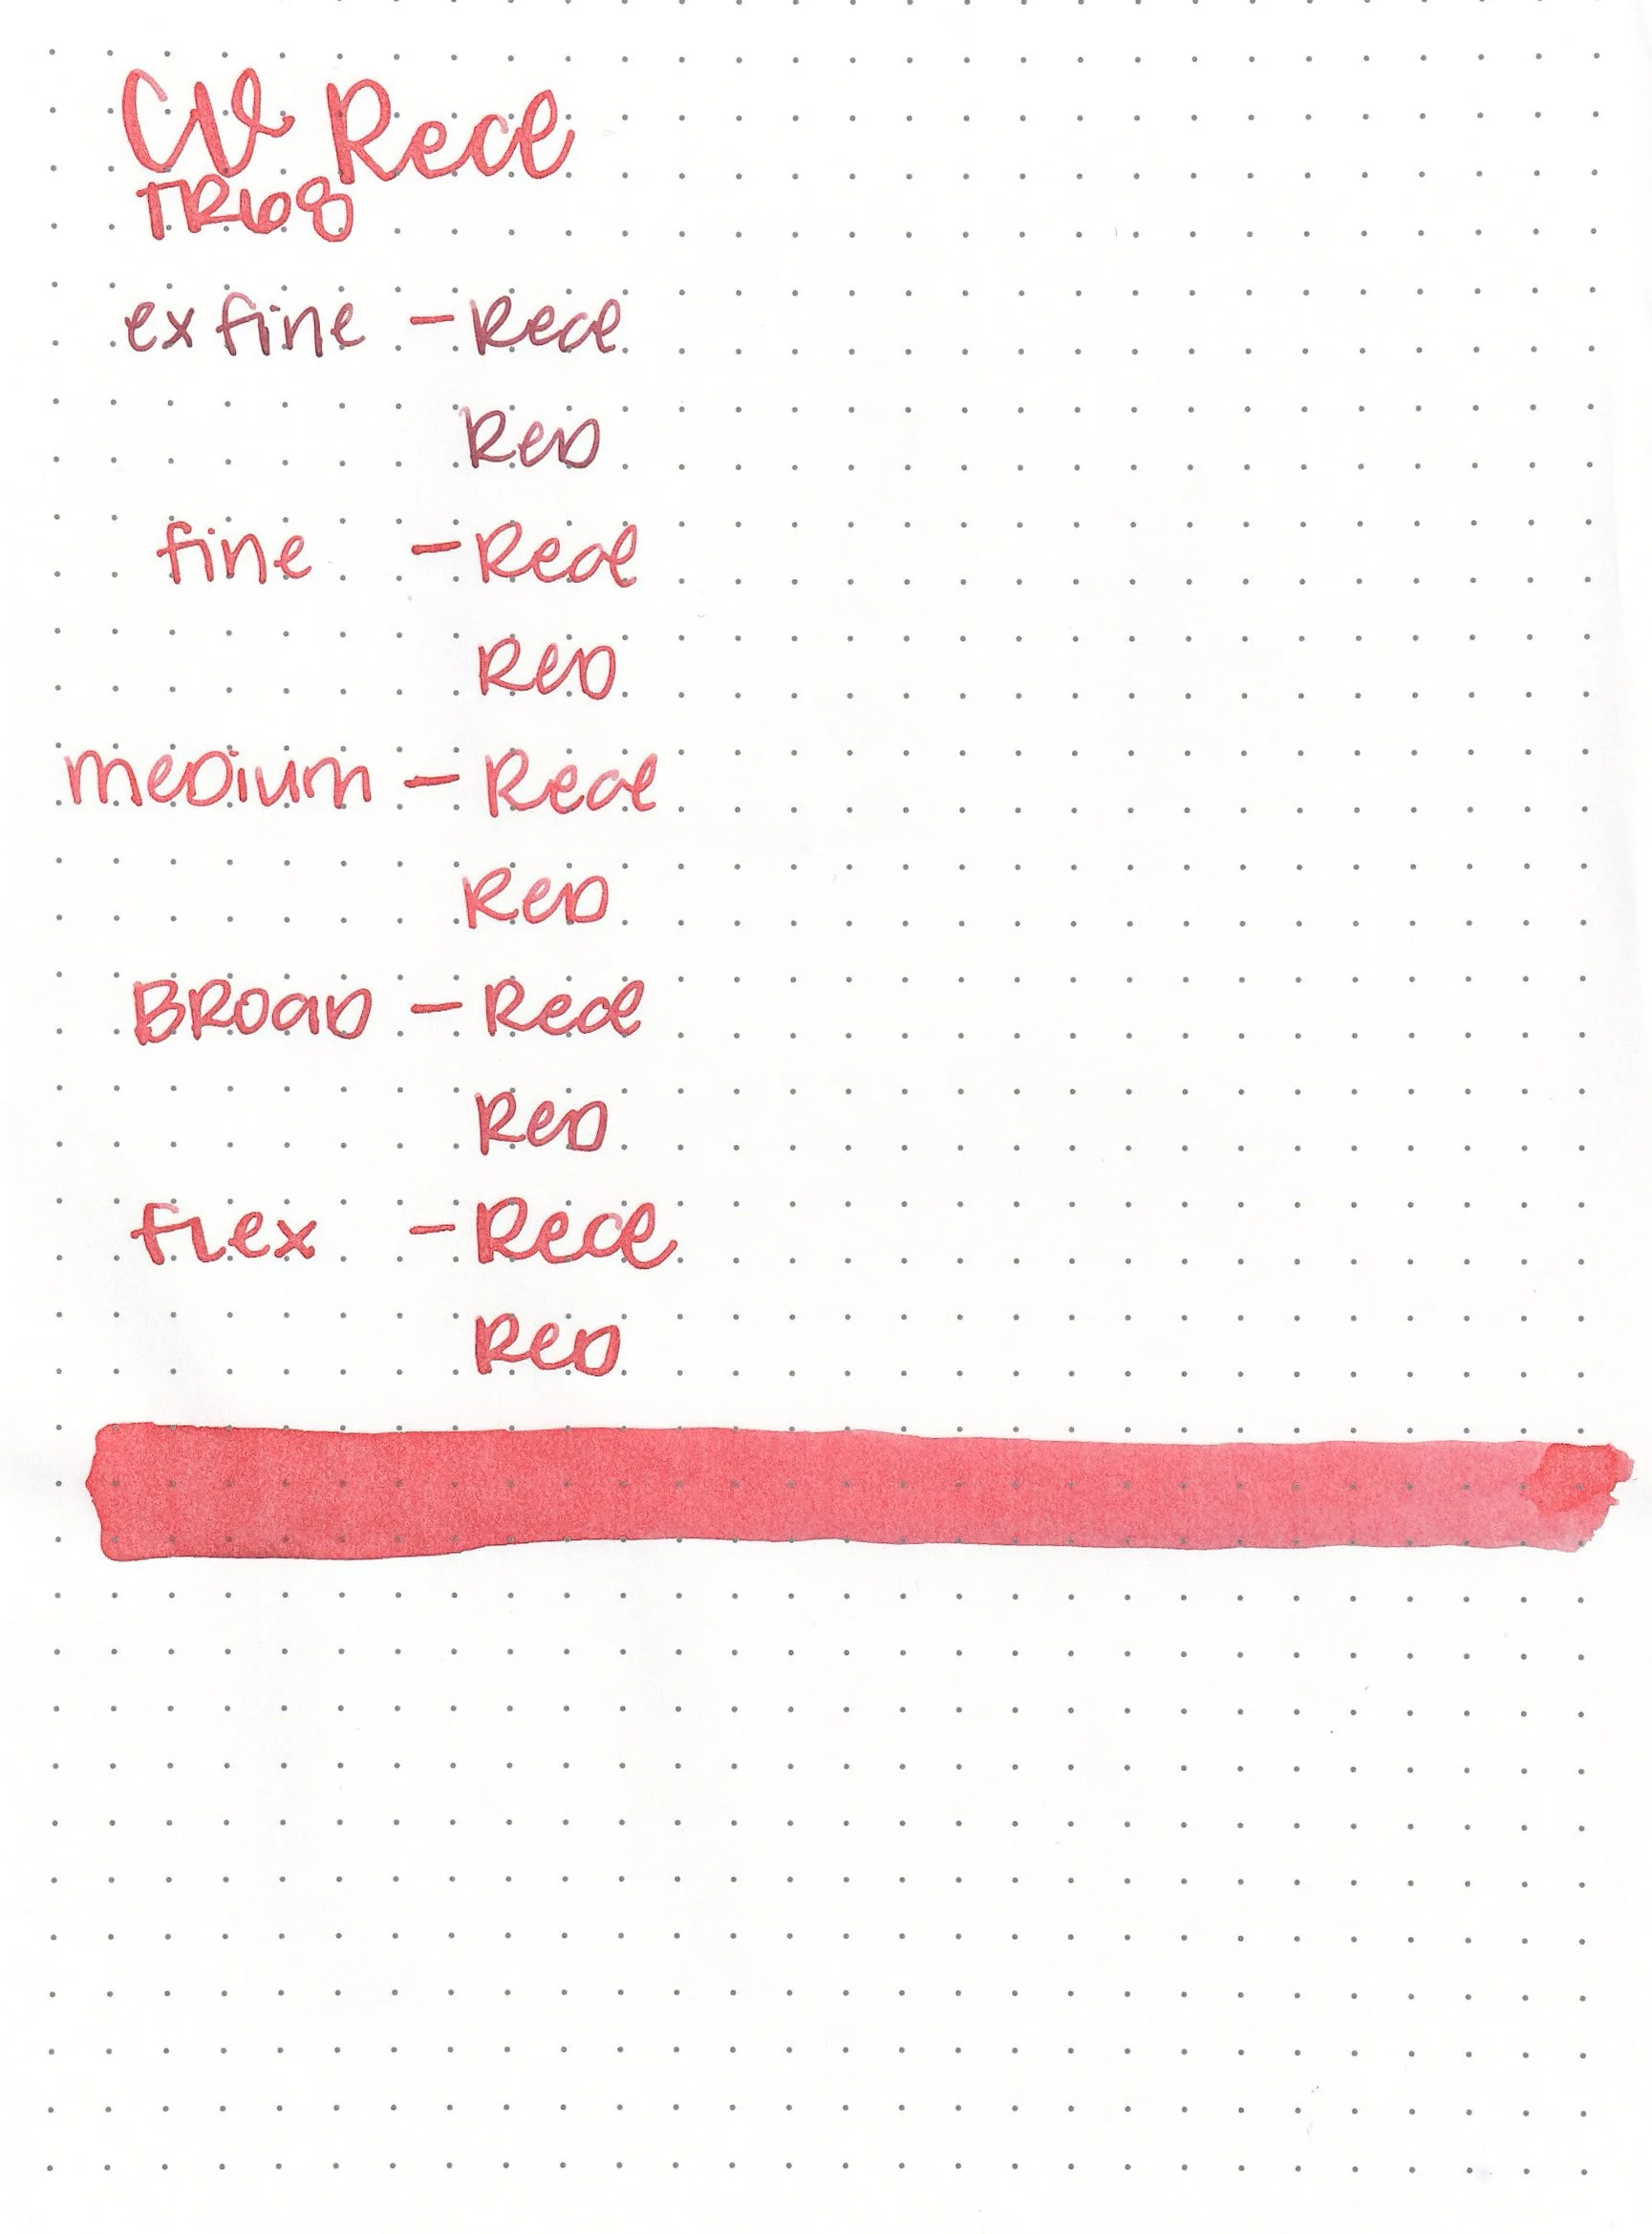 CW Red
TR68
ex fine - Red
Red
fine - Red
Red
medium - Red
Red
Broad - Red
Red
flex - Red
Red